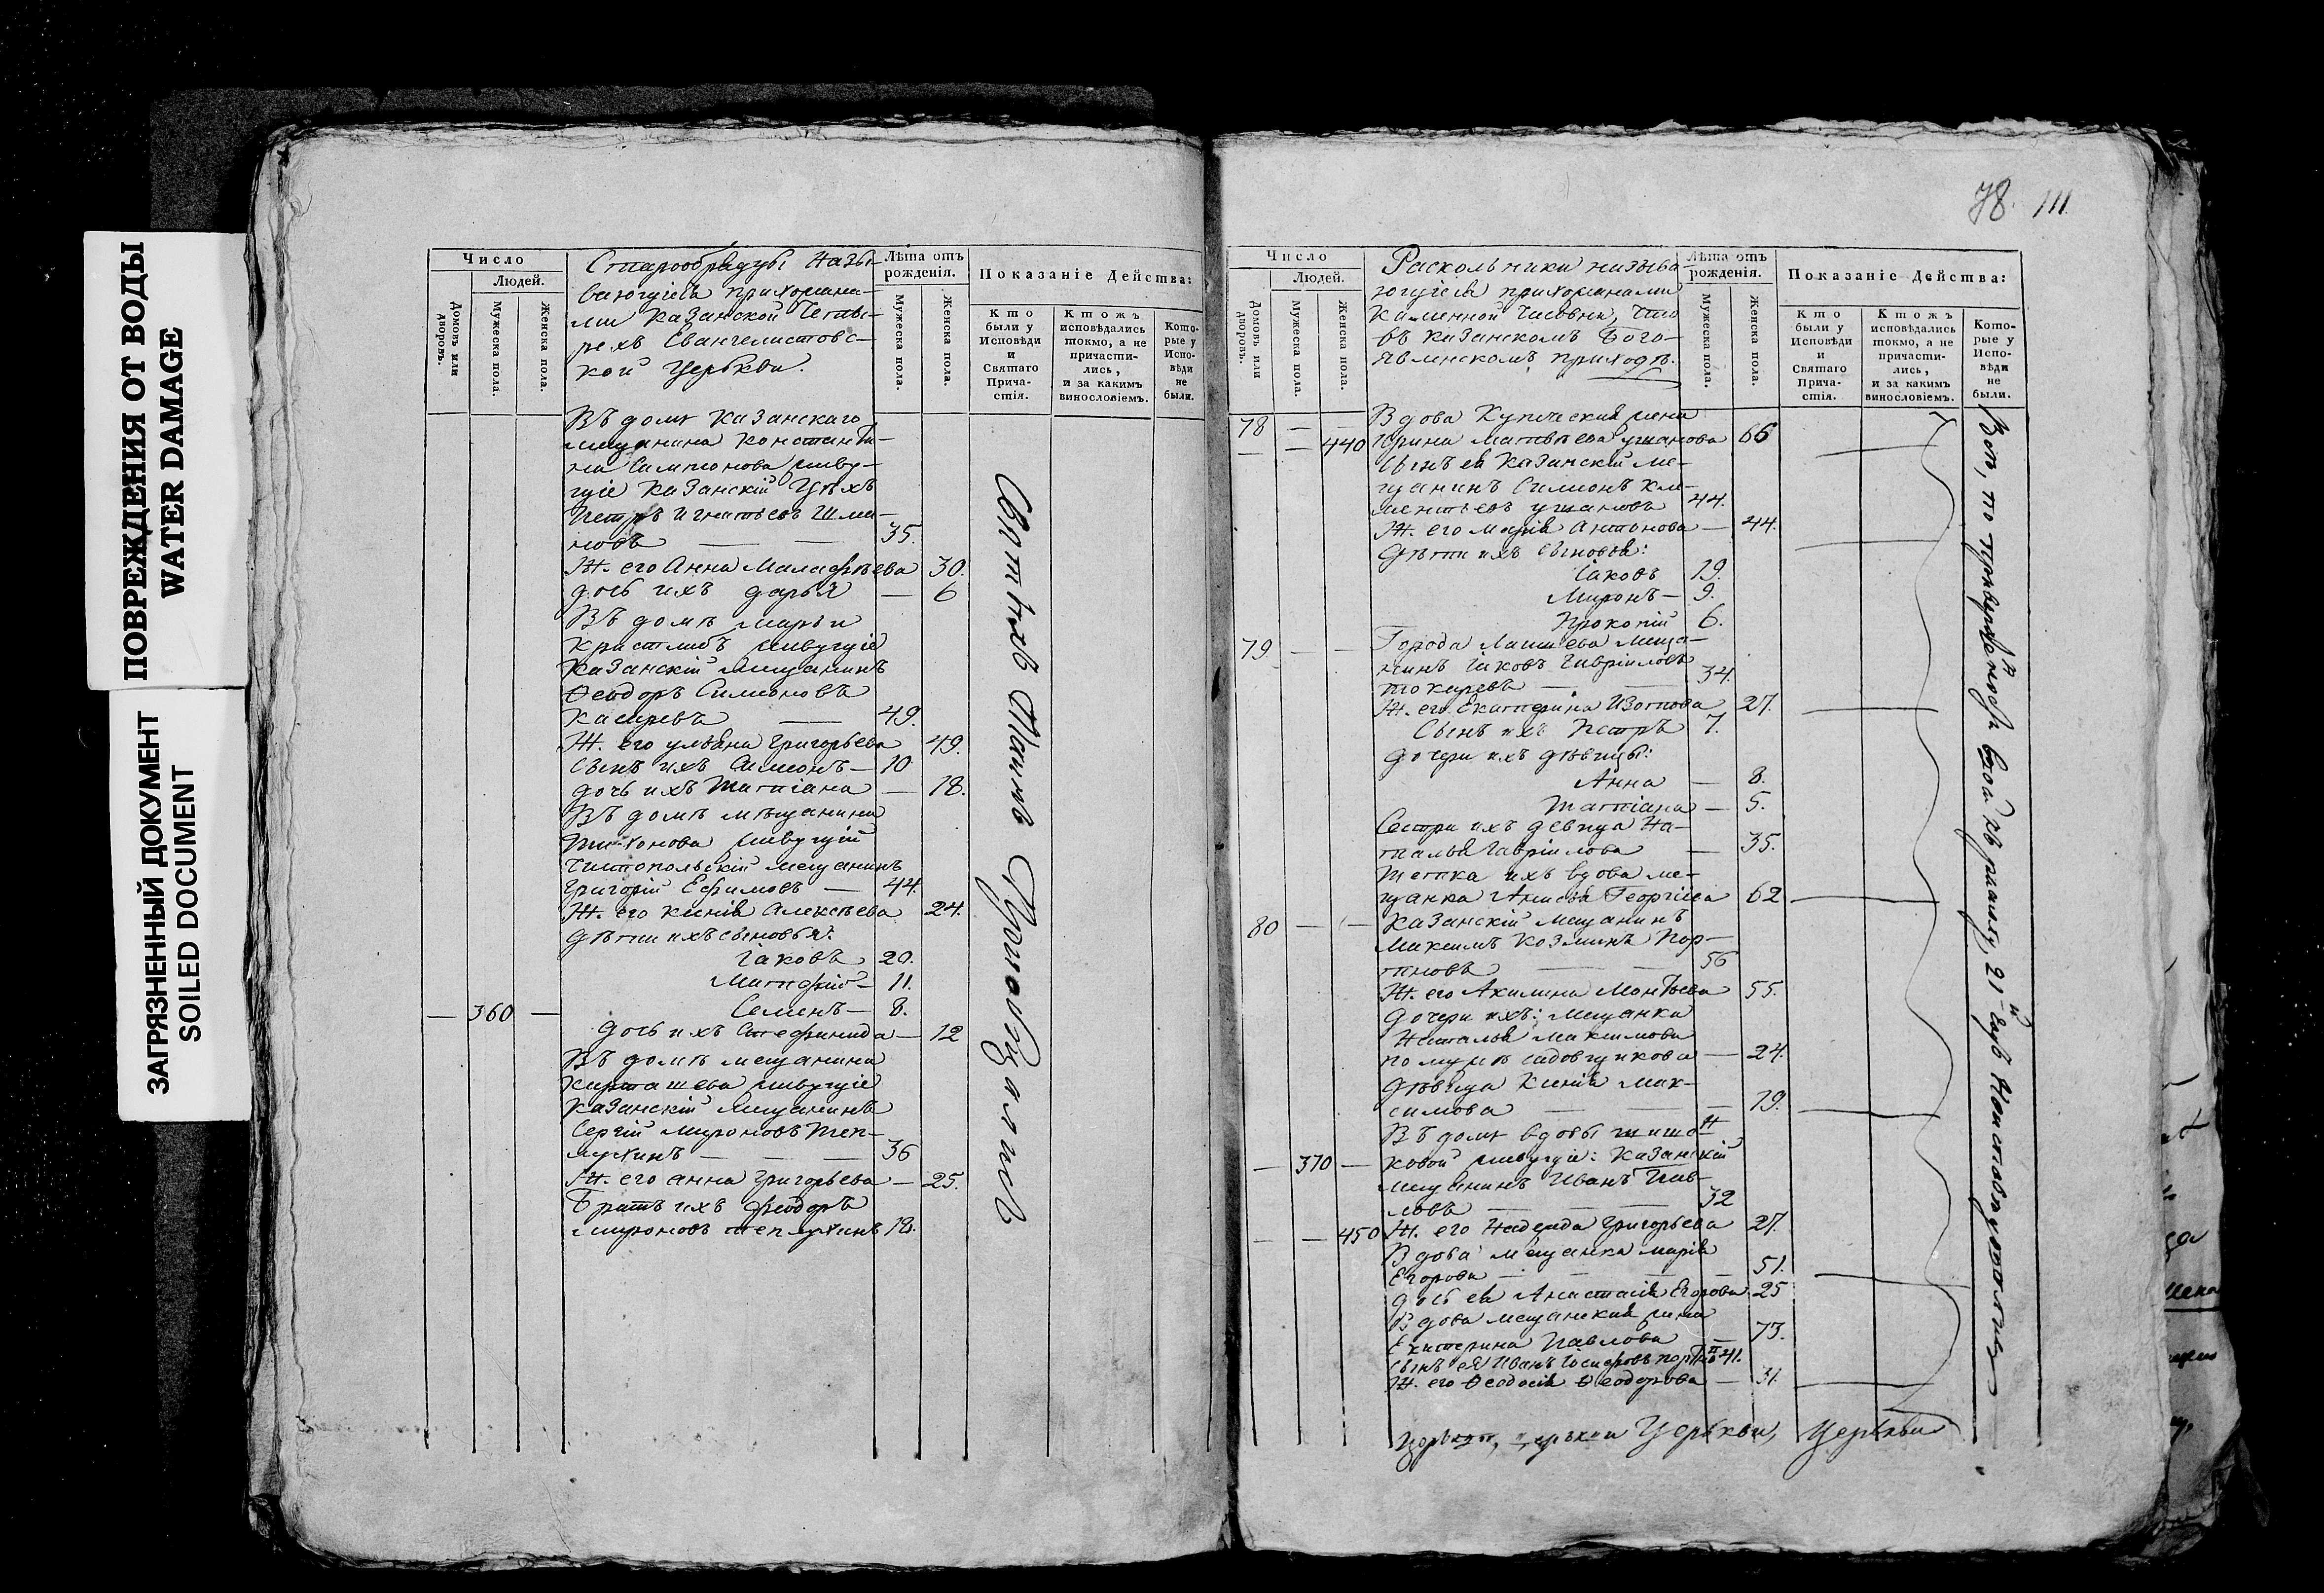 ПОВРЕЖДЕНИЯ ОТ ВОДЫ
WATER DAMAGE
ЗАГРЯЗНЕННЫЙ ДОКУМЕНТ
SOILED DOCUMENT
Число
Людей.
Домовъ или дворовъ.
Мужеска пола.
Женска пола.
Старообрядцы назы-
вающіеся прихожана-
ми Казанской Четы-
рехъ Евангелистовс-
кой Церькви.
Лѣта отъ
рожденія.
Мужеска пола.
Женска пола.
Показаніе Действа:
Кто были у Исповѣди и Святаго Прича- стія.
Ктожъ исповѣдались токмо, а не причасти- лись, и за какимъ винословіемъ.
Кото- рые у Испо- вѣди не были.
Въ домѣ Казанскаго
мещанина Константи-
на Симионова живу-
щіе Казанскій Цѣхъ
Петръ Игнатьевъ Шма-
новъ — — 35.
Ж. его Анна Малафѣева 30.
дочь ихъ дарья — 6
Въ домѣ Марьи
Кристлибъ живущіе
Казанскій Мещанинъ
Ѳеодоръ Симионовъ
— 49.
Ж. его ульяна Григорьева 49.
сынъ ихъ Симионъ — 10
дочь ихъ Татіана — 18.
Въ домѣ мѣщанина
Тихонова живущій
Чистопольскій мещанинъ
Григорій Ефимовъ — 44.
Ж. его Ксенія Алексѣева 24.
дѣти ихъ сыновья:
Іаковъ 20.
Матфій — 11.
— 360 — Семенъ — 8.
дочь ихъ Стефанида — 12
Въ домѣ мещанина
Карташева живущіе
Казанскій Мещанинъ
Сергій Мироновъ Теп-
лухинъ — — — 36
Ж. его анна Григорьева — 25.
Братъ ихъ Феодоръ
Мироновъ теплухинъ 18.
78. 111
Число
Людей.
Домовъ или дворовъ.
Мужеска пола.
Женска пола.
Раскольники называ-
ющіеся прихожанами
Каменной Часовни, что
въ Казанскомъ Бого-
явленскомъ приходѣ.
Лѣта отъ
рожденія.
Мужеска пола.
Женска пола.
Показаніе Действа:
Кто были у Исповѣди и Святаго Прича- стія.
Ктожъ исповѣдались токмо, а не причасти- лись, и за какимъ винословіемъ.
Кото- рые у Испо- вѣди не были.
78 — — Вдова Купеческая жена
— — 440 Ирина Матвѣева ушанова 66
сынъ ея Казанскій ме-
щанинъ Симионъ Кли-
ментьевъ ушановъ 44.
Ж. его марія Антонова — 44.
Дѣти ихъ сыновья:
Іаковъ 19.
Миронъ — 9.
Прокопій 6.
79 — — Города Лаишева Меща-
нинъ Іаковъ Гавріиловъ
токаревъ — — 34.
Ж. его Екатерина Изотова 27.
Сынъ ихъ Петръ 7.
дочери ихъ дѣвицы:
Анна — 8.
Татіана — 5.
Сестра ихъ девица На-
талья Гавріилова — 35.
Тетка ихъ вдова ме-
щанка Георгіева 62
80 — — Казанскій мещанинъ
Максимъ Козминъ Пор-
тновъ — — 56
Ж. его Акилина 55.
Дочери ихъ: мещанка
Наталья Максимова
по мужѣ садовщикова — 24.
Дѣвица Ксенія Мак-
симова — — — 19.
Въ домѣ вдовы
— 370 — ковой живущіе: Казанскій
мещанинъ Иванъ Пав-
ловъ — — 32
— — 450 Ж. его Надежда Григорьева 27.
Вдова мещанка марія
Егорова — — — 51.
дочь ея Анастасія Егорова 25
Вдова мещанская жена
Екатерина Павлова — 73.
сынъ ея Иванъ 41.
Ж. его Ѳеодосія Ѳеодорова — 31.
Церькви, Церькви